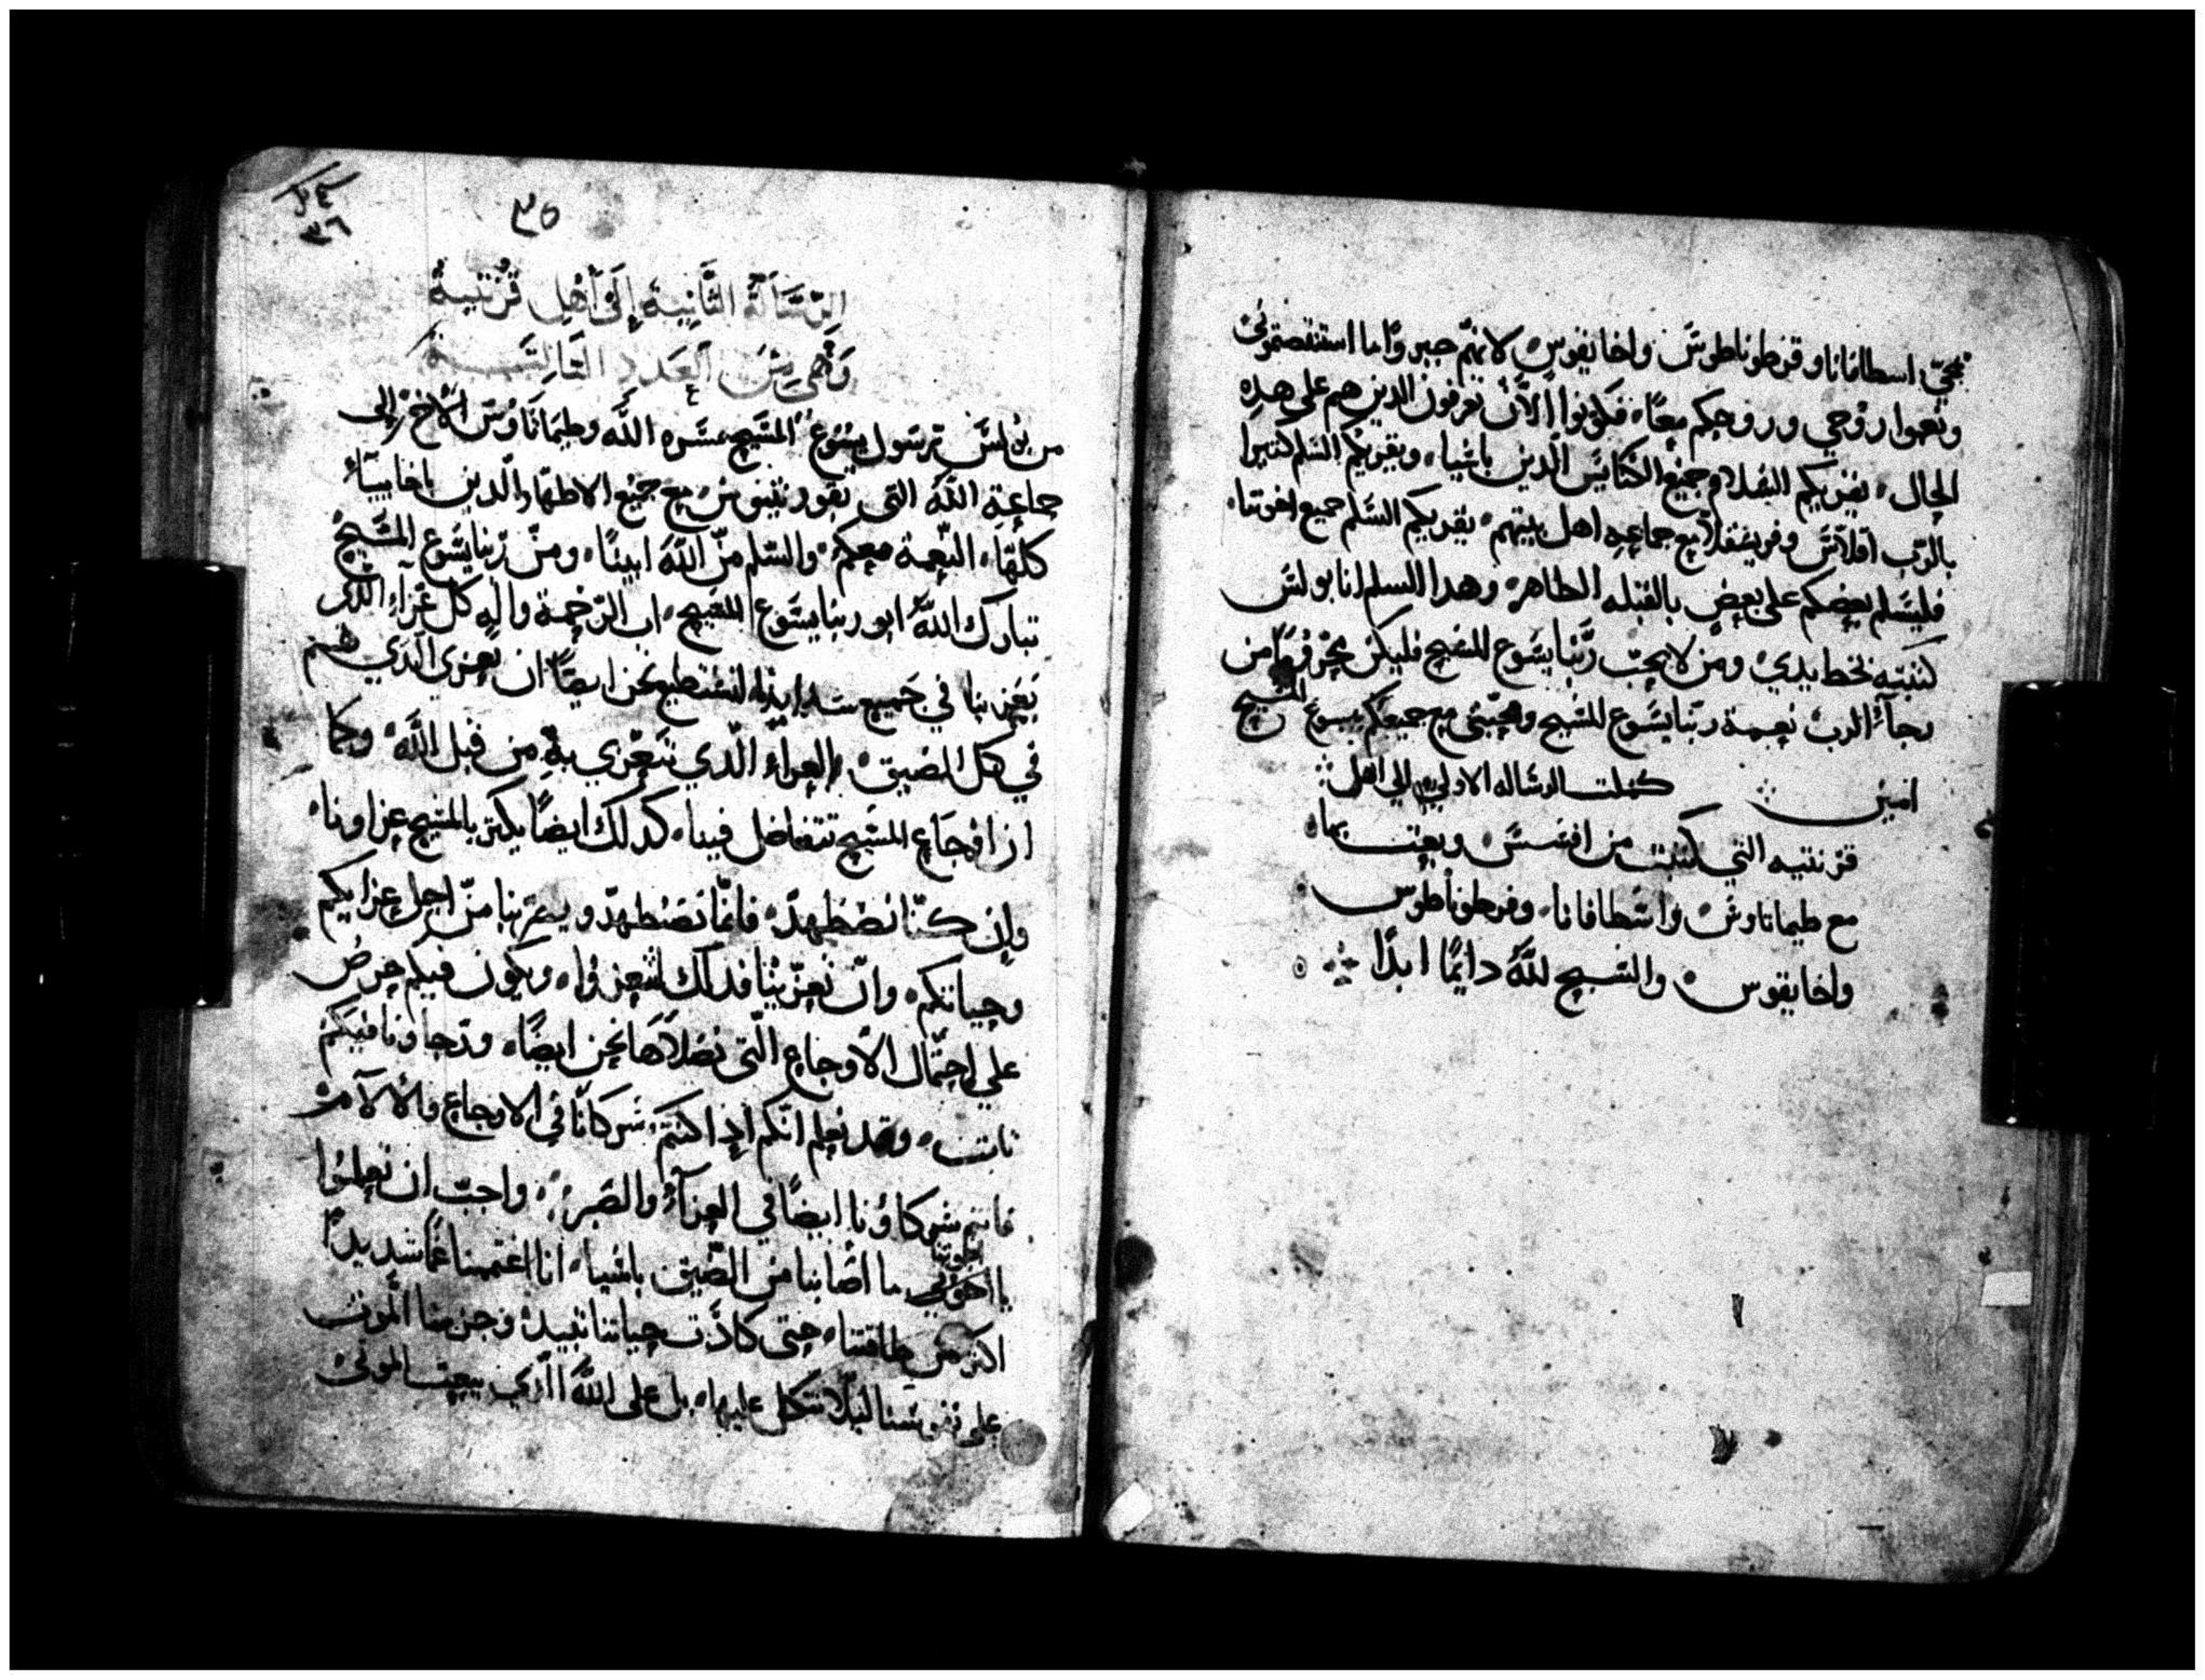 بمجي اسطافانا وقرطوناطوس واخايقوس لانهم جبروا ما استنقصتموني
ونعموا روحي وروحكم معًا فكونوا الآن تعرفون الدين هم على هده
الحال يقريكم السلام جميع الكنايس الدين باسيا ويقريكم السلم كتيرا
بالرب اقلاس وفريسقلا مع جماعه اهل بيتهم يقريكم السلم جميع اخوتنا
فليسلم بعضكم على بعض بالقبله الطاهره وهدا السلم انا بولس
كتبته بخط يدي ومن لا يحب ربنا يسوع المسيح فليكن محروما من
رجآء الرب نعمة ربنا يسوع المسيح ومحبتي مع جميعكم بيسوع المسيح
امين كملت الرساله الاولي الي اهل
قرنتيه التي كتبت من افسس وبعت بها
مع طيماتاوس واسطافانا وفرطوناطوس
واخايقوس والتسبيح للّه دايمًا ابدًا
٣٥
٣٦
الرسالة الثانية إلى أهل قرنتية
وهي من العدد التالتة
من بولس رسول يسوع المسيح بمسره اللّه وطيماتاوس الأخ إلى
جماعة اللّه التى بقورنتيوس مع جميع الاطهار الدين باخاييآء
كلها النعمة معكم والسلم من اللّه ابينا ومن ربنا يسوع المسيح
تبارك اللّه ابو ربنا يسوع المسيح اب الرحمة واله كل عزآء الدي
يعزينا في جميع شدايدنا لنستطيع نحن ايضًا ان نعزي الدي هم
في كل المضيق بالعزاء الدي نتعزي به من قبل اللّه وكما
ان اوجاع المسيح تتفاضل فينا كدلك ايضًا يكتر بالمسيح عزاونا
وإن كنا نضطهد فانما نضطهد ويعزينا من اجل عزايكم
وحياتكم وان تعزينا فدلك لتتعزوا ويكون فيكم حرص
على احتمال الأوجاع التى نصلاها نحن ايضًا ورجاونا فيكم
تابت وقد نعلم انكم إذا كنتم شركانا في الاوجاع والآلام
فانتم شركاؤنا ايضًا في العزآء والصبر واحب ان تعلموا
يا اخوتي اخوتنا ما اصابنا من الضيق باسيا انا اغتممنا غمًا شديدًا
اكتر من طاقتنا حتى كادت حياتنا تبيد وجزمنا الموت
على نفوسنا ليلا نتكل عليها بل على اللّه الدي يبعت الموتى